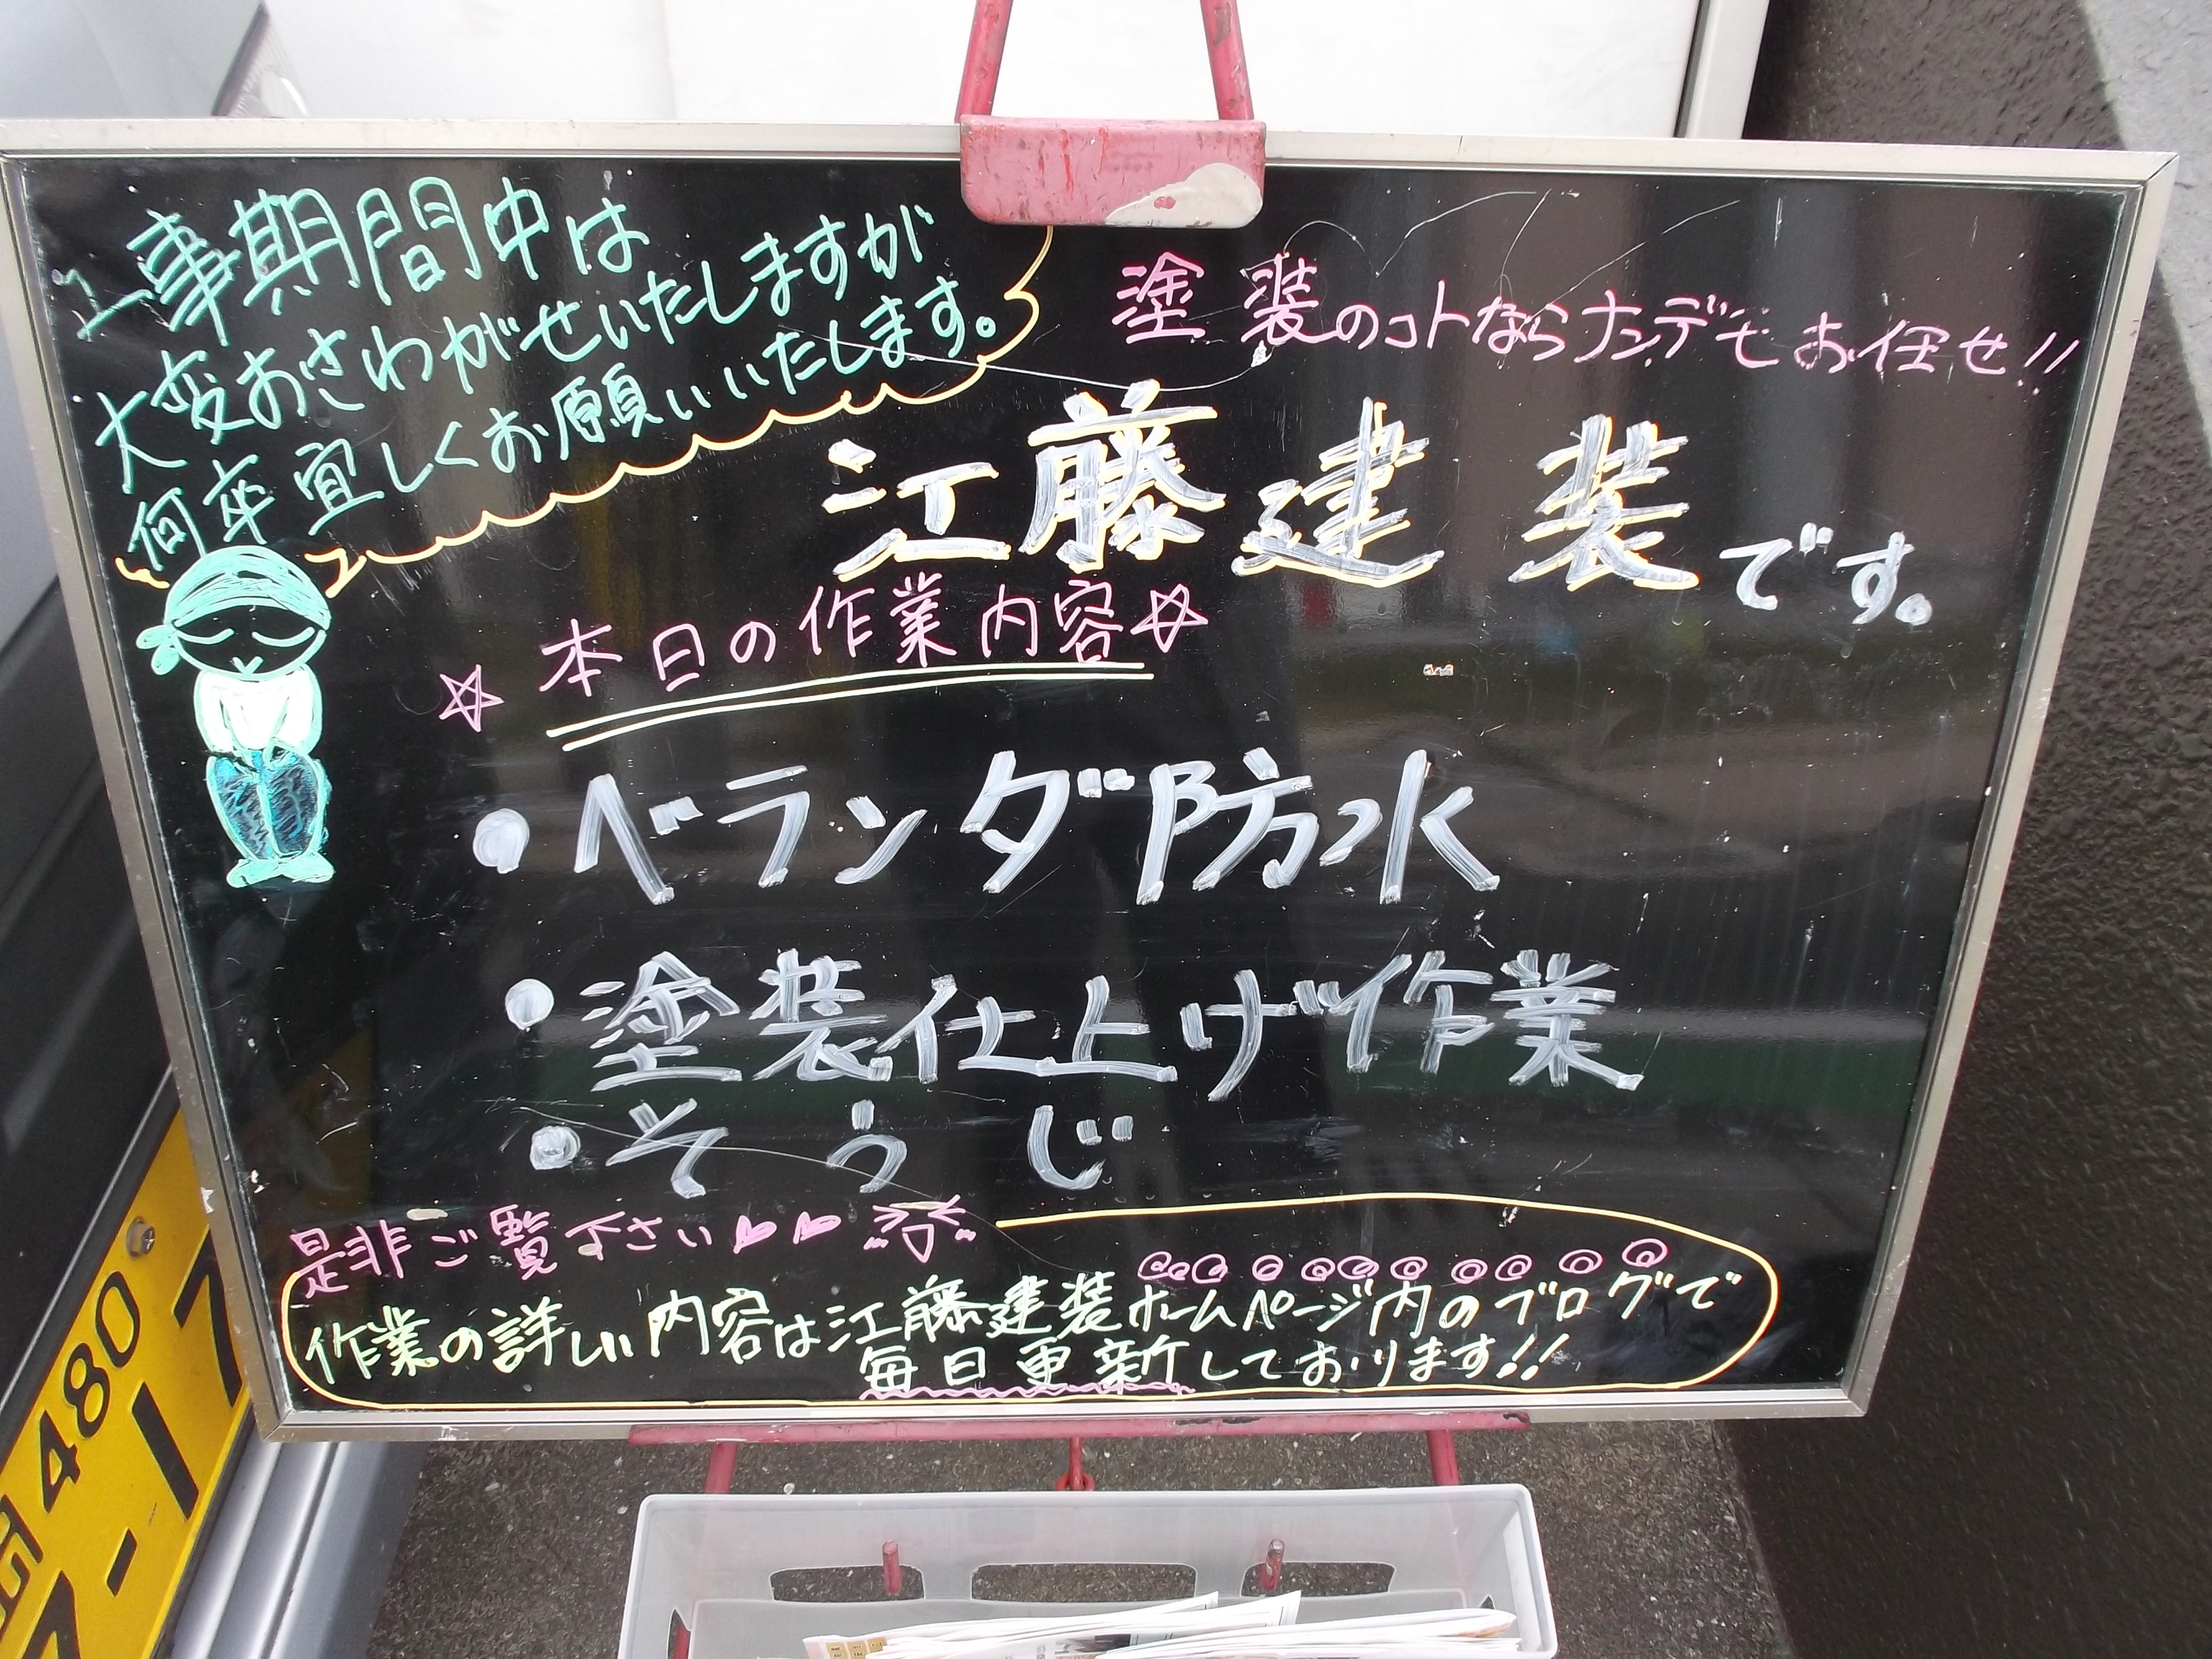 工事期間中は
大変おさわがせいたしますが
何卒宜しくお願いいたします。
塗装のコトならナンデモお任せ!!
江藤建装です。
☆本日の作業内容☆
・ベランダ防水
・塗装仕上げ作業
・そうじ
是非ご覧下さい
作業の詳しい内容は江藤建装ホームページ内のブログで
毎日更新しております!!
480